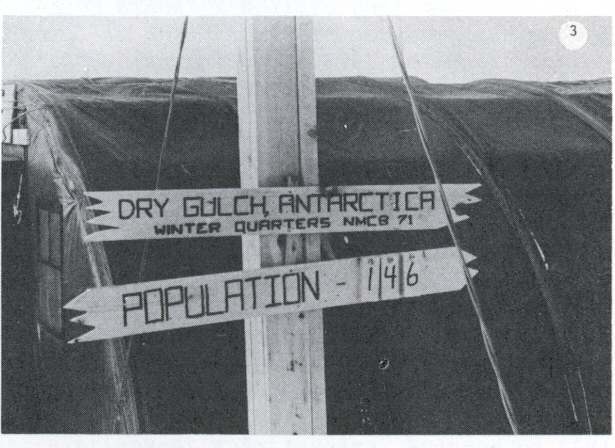 3
DRY GULCH, ANTARCTICA
WINTER QUARTERS NMCB 71
POPULATION - 146